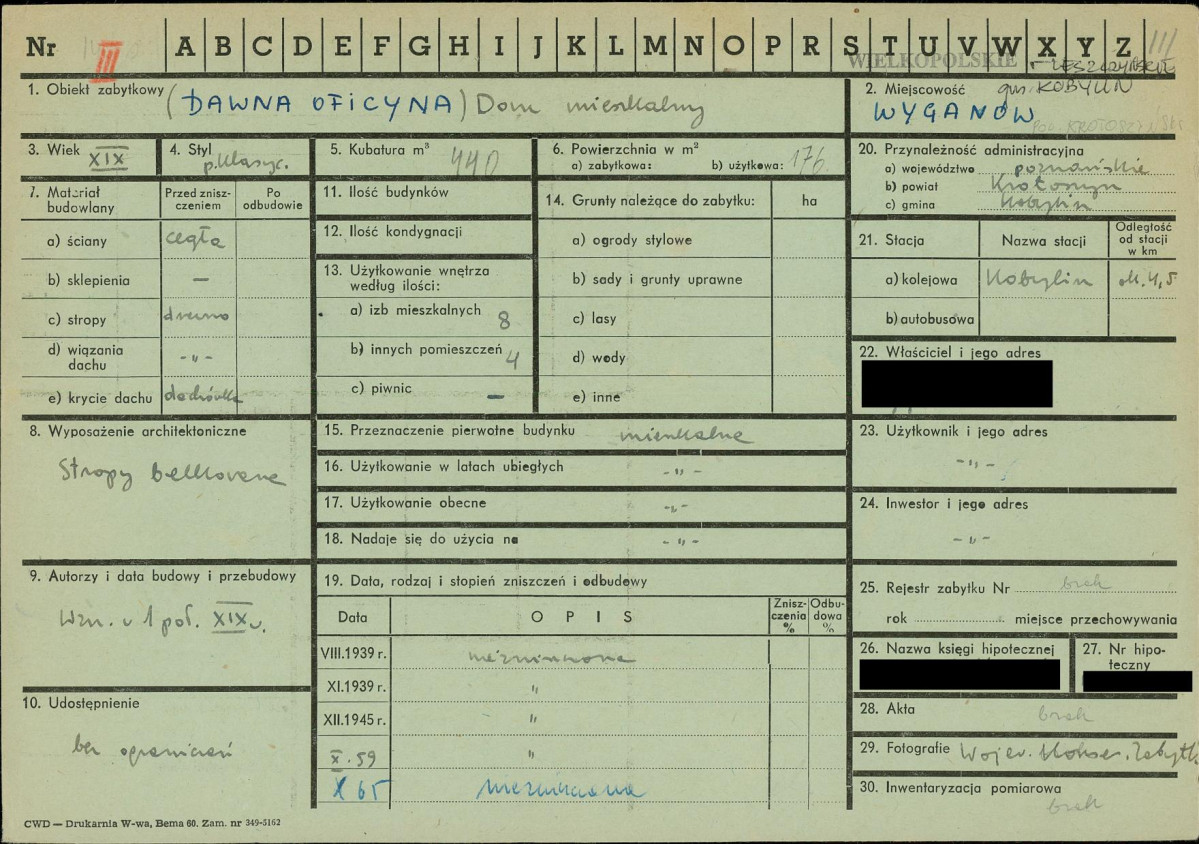 Nr III A B C D E F G H I J K L M N O P R S T U V W X Y Z III
WIELKOPOLSKIE
LESZCZYŃSKIE
1. Obiekt zabytkowy (DAWNA OFICYNA) Dom mieszkalny
2. Miejscowość gm. KOBYLIN
WYGANÓW
POW. KROTOSZYŃSKI
3. Wiek XIX
4. Styl p. klasyc.
5. Kubatura m³ 440
6. Powierzchnia w m²
a) zabytkowa: b) użytkowa: 176
7. Materiał budowlany
Przed zniszczeniem
Po odbudowie
a) ściany cegła
b) sklepienia —
c) stropy drewno
d) wiązania dachu -"-
e) krycie dachu dachówka
8. Wyposażenie architektoniczne
Stropy belkowane
9. Autorzy i data budowy i przebudowy
Wzn. w 1 poł. XIX w.
10. Udostępnienie
bez ograniczeń
11. Ilość budynków
12. Ilość kondygnacji
13. Użytkowanie wnętrza według ilości:
a) izb mieszkalnych 8
b) innych pomieszczeń 4
c) piwnic —
14. Grunty należące do zabytku: ha
a) ogrody stylowe
b) sady i grunty uprawne
c) lasy
d) wody
e) inne
15. Przeznaczenie pierwotne budynku mieszkalne
16. Użytkowanie w latach ubiegłych -"-
17. Użytkowanie obecne -"-
18. Nadaje się do użycia na -"-
19. Data, rodzaj i stopień zniszczeń i odbudowy
Data OPIS Zniszczenia % Odbudowa %
VIII.1939 r. niezniszczona
XI.1939 r. "
XII.1945 r. "
X.59 "
X 65 niezniszczona
20. Przynależność administracyjna
a) województwo poznańskie
b) powiat Krotoszyn
c) gmina Kobylin
21. Stacja Nazwa stacji Odległość od stacji w km
a) kolejowa Kobylin ok. 4,5
b) autobusowa
22. Właściciel i jego adres
23. Użytkownik i jego adres
-"-
24. Inwestor i jego adres
-"-
25. Rejestr zabytku Nr brak
rok miejsce przechowywania
26. Nazwa księgi hipotecznej
27. Nr hipoteczny
28. Akta brak
29. Fotografie Wojew. Konser. Zabytk
30. Inwentaryzacja pomiarowa
brak
CWD — Drukarnia W-wa, Bema 60. Zam. nr 349-5162